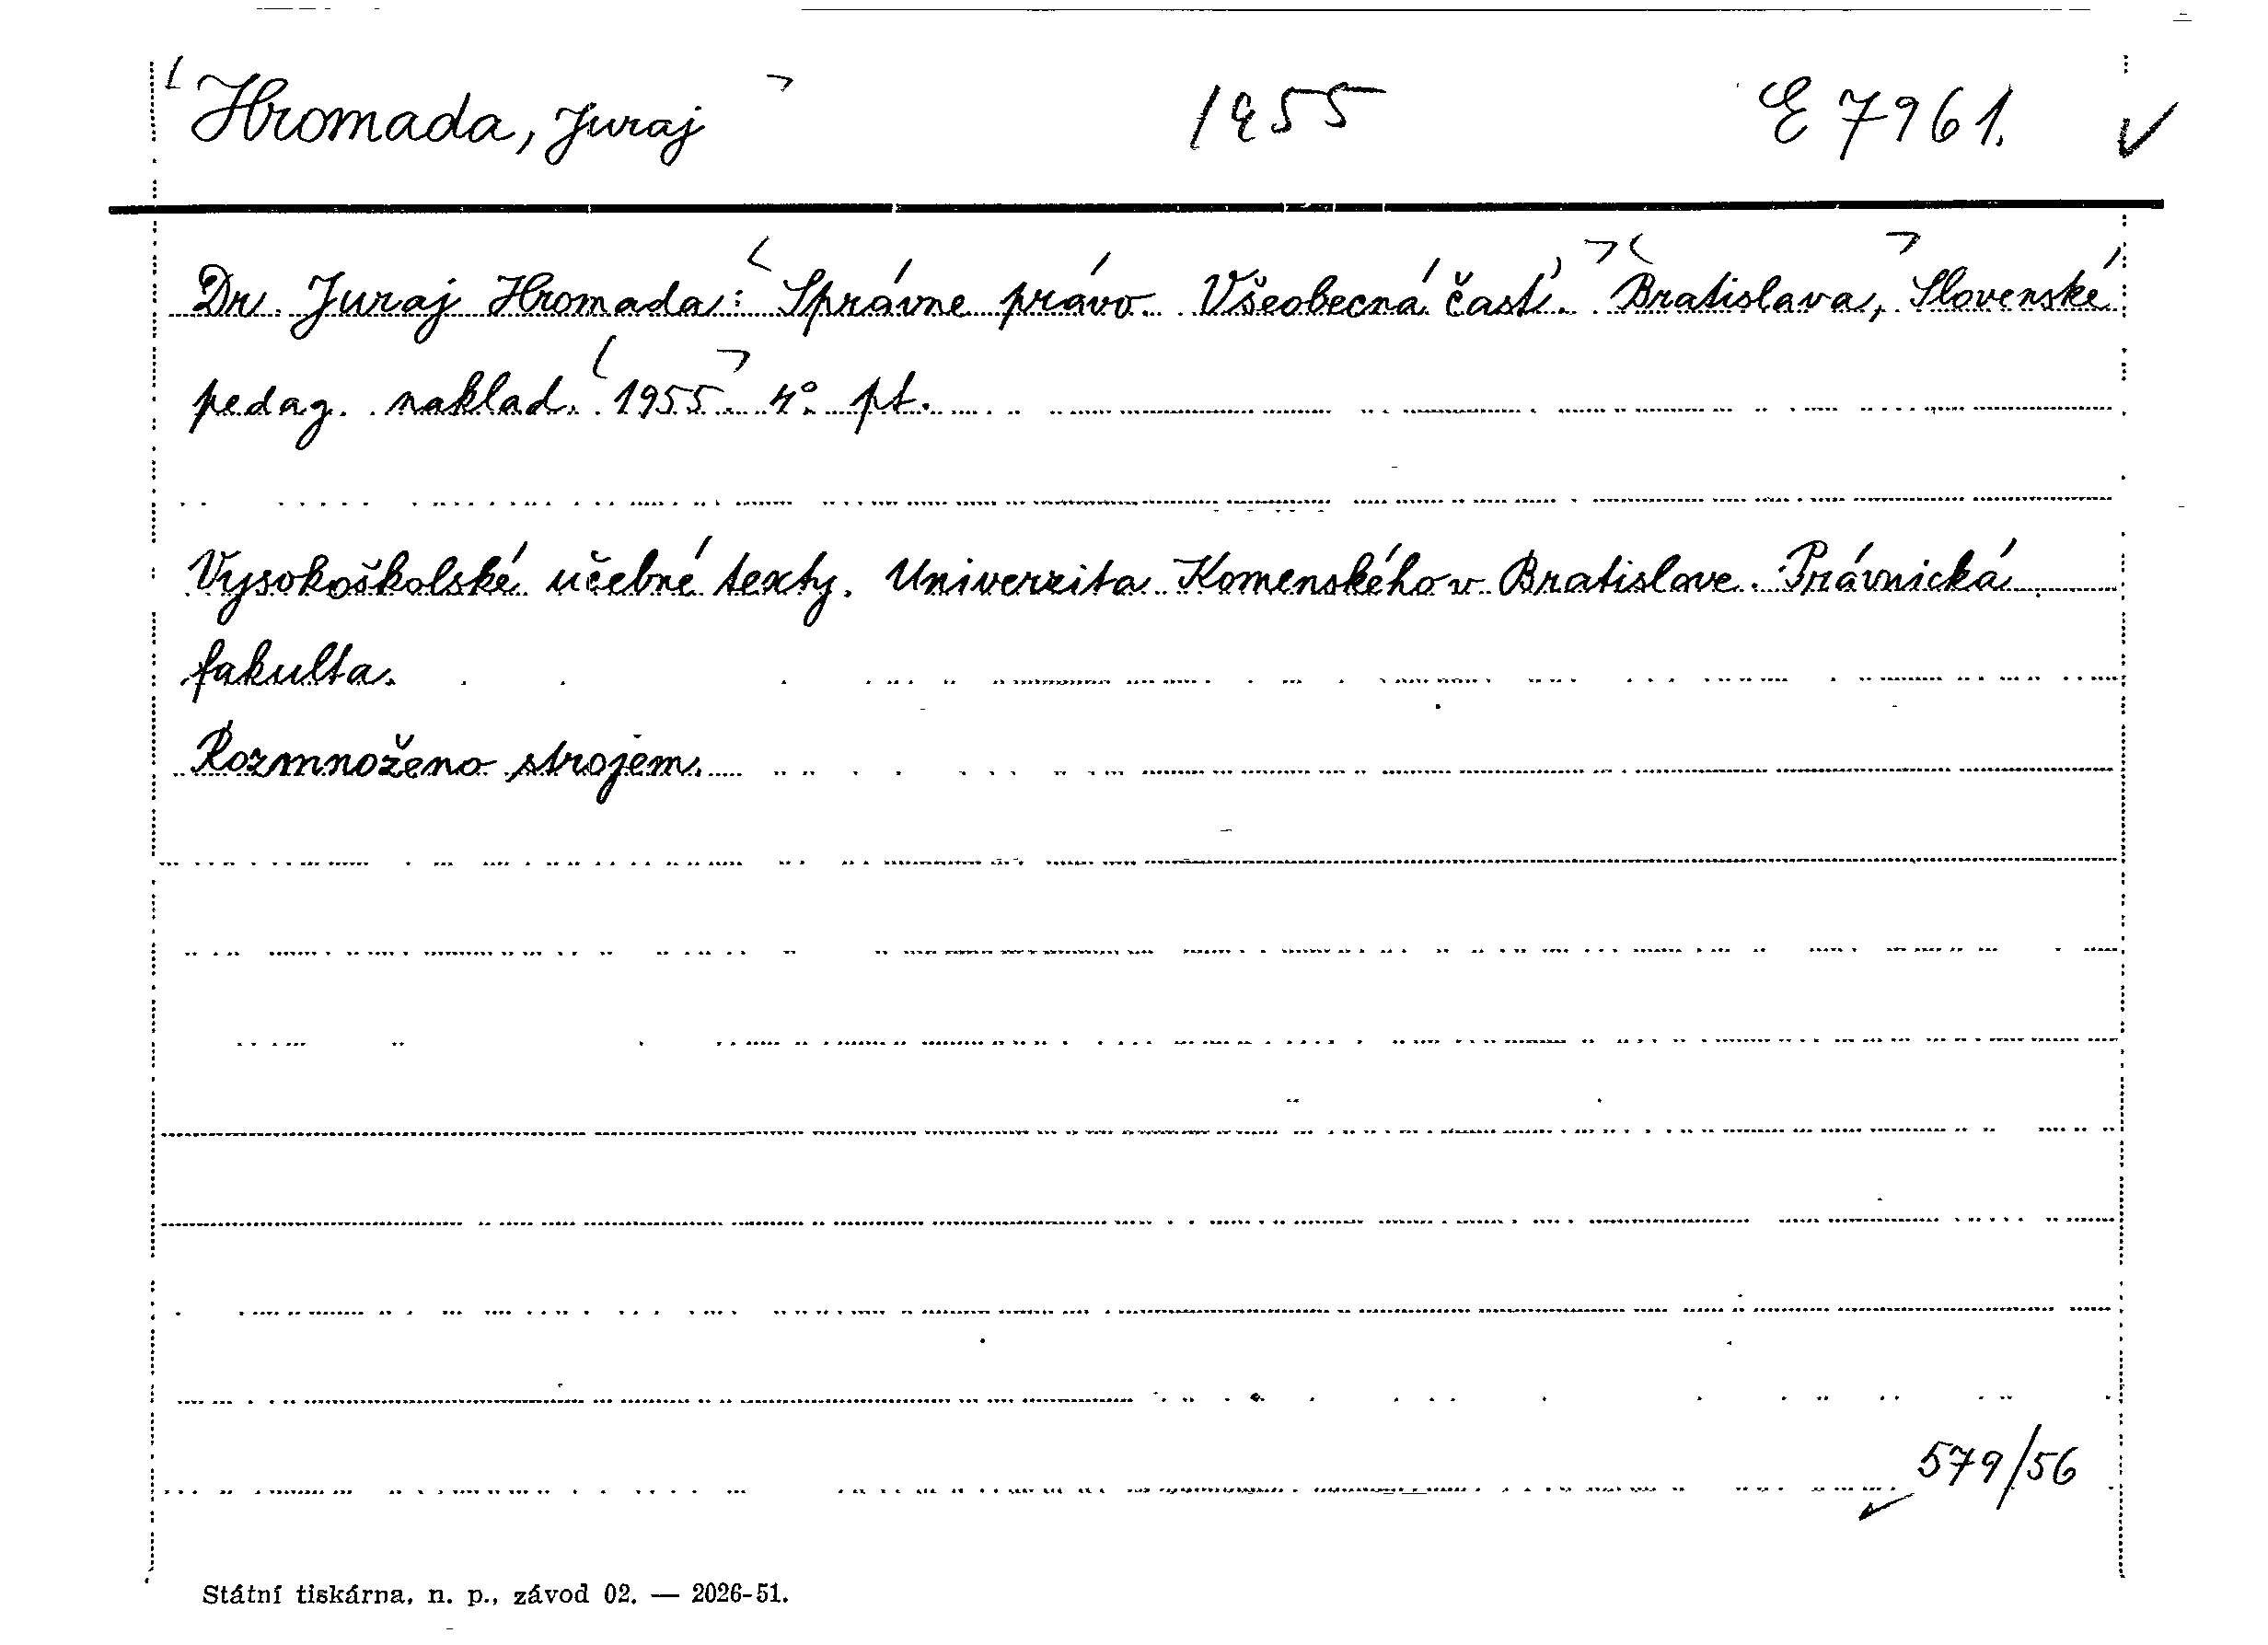 Hromada, Juraj 1955 E 7961.
Dr. Juraj Hromada: Správne právo. Všeobecná časť. Bratislava, Slovenské
pedag. naklad. 1955. 4° pt.
Vysokoškolské učebné texty. Univerzita Komenského v Bratislave. Právnická
fakulta.
Rozmnoženo strojem.
579/56
Státní tiskárna, n. p., závod 02. — 2026-51.